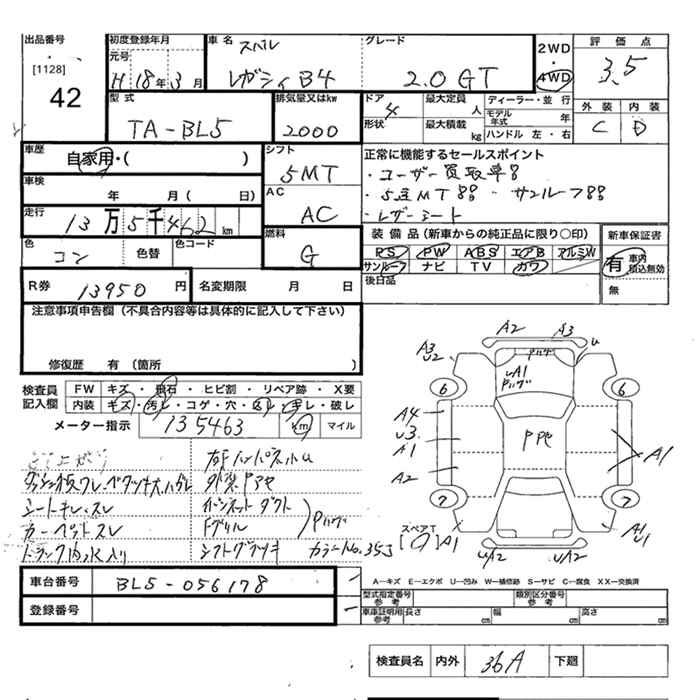 出品番号
[1128]
42
初度登録年月
元号
H 18年3月
車名 スバル
レガシィB4
グレード
2.0 GT
2WD
4WD
評価点
3.5
外装 内装
C D
型式
TA-BL5
排気量又はkw
2000
ドア 4
形状
最大定員 人
最大積載 kg
ディーラー・並 行
モデル年式 年
ハンドル 左・右
車歴
自家用・( )
シフト
5MT
正常に機能するセールスポイント
・ユーザー買取車!!
・5速MT!! ・サンルーフ!!
・レザーシート
車検
年 月 ( 日)
AC
AC
走行
13万5千462km
色
コン
色替
色コード
燃料
G
装備品(新車からの純正品に限り○印)
PS PW ABS エアB アルミW
サンルーフ ナビ TV カワ
後日品
新車保証書
有 車内積込無効
無
R券 13950円
名変期限 月 日
注意事項申告欄(不具合内容等は具体的に記入して下さい)
修復歴 有(箇所 )
検査員記入欄
FW キズ・飛石・ヒビ割・リペア跡・X要
内装 キズ・汚レ・コゲ・穴・スレ・キレ・破レ
メーター指示 135463 km マイル
シートキレ、スレ
カーペットスレ
トランク内水入り
ボンネットダクト
Fグリル
シフトグラつキ
カラーNo.353
A2 A3 U
A3
U2
UA1
6 6
A4
U3
A1
A2
PPセ
A1
7 7
スペアT
A1
UA2 UA2
A1
U
車台番号 BL5-056178
登録番号
A-キズ E-エクボ U-凹み W-補修跡 S-サビ C-腐食 XX-交換済
型式指定番号参考
類別区分番号参考
車庫証明用参考 長さ cm 幅 cm 高さ cm
検査員名 内外 36A 下廻